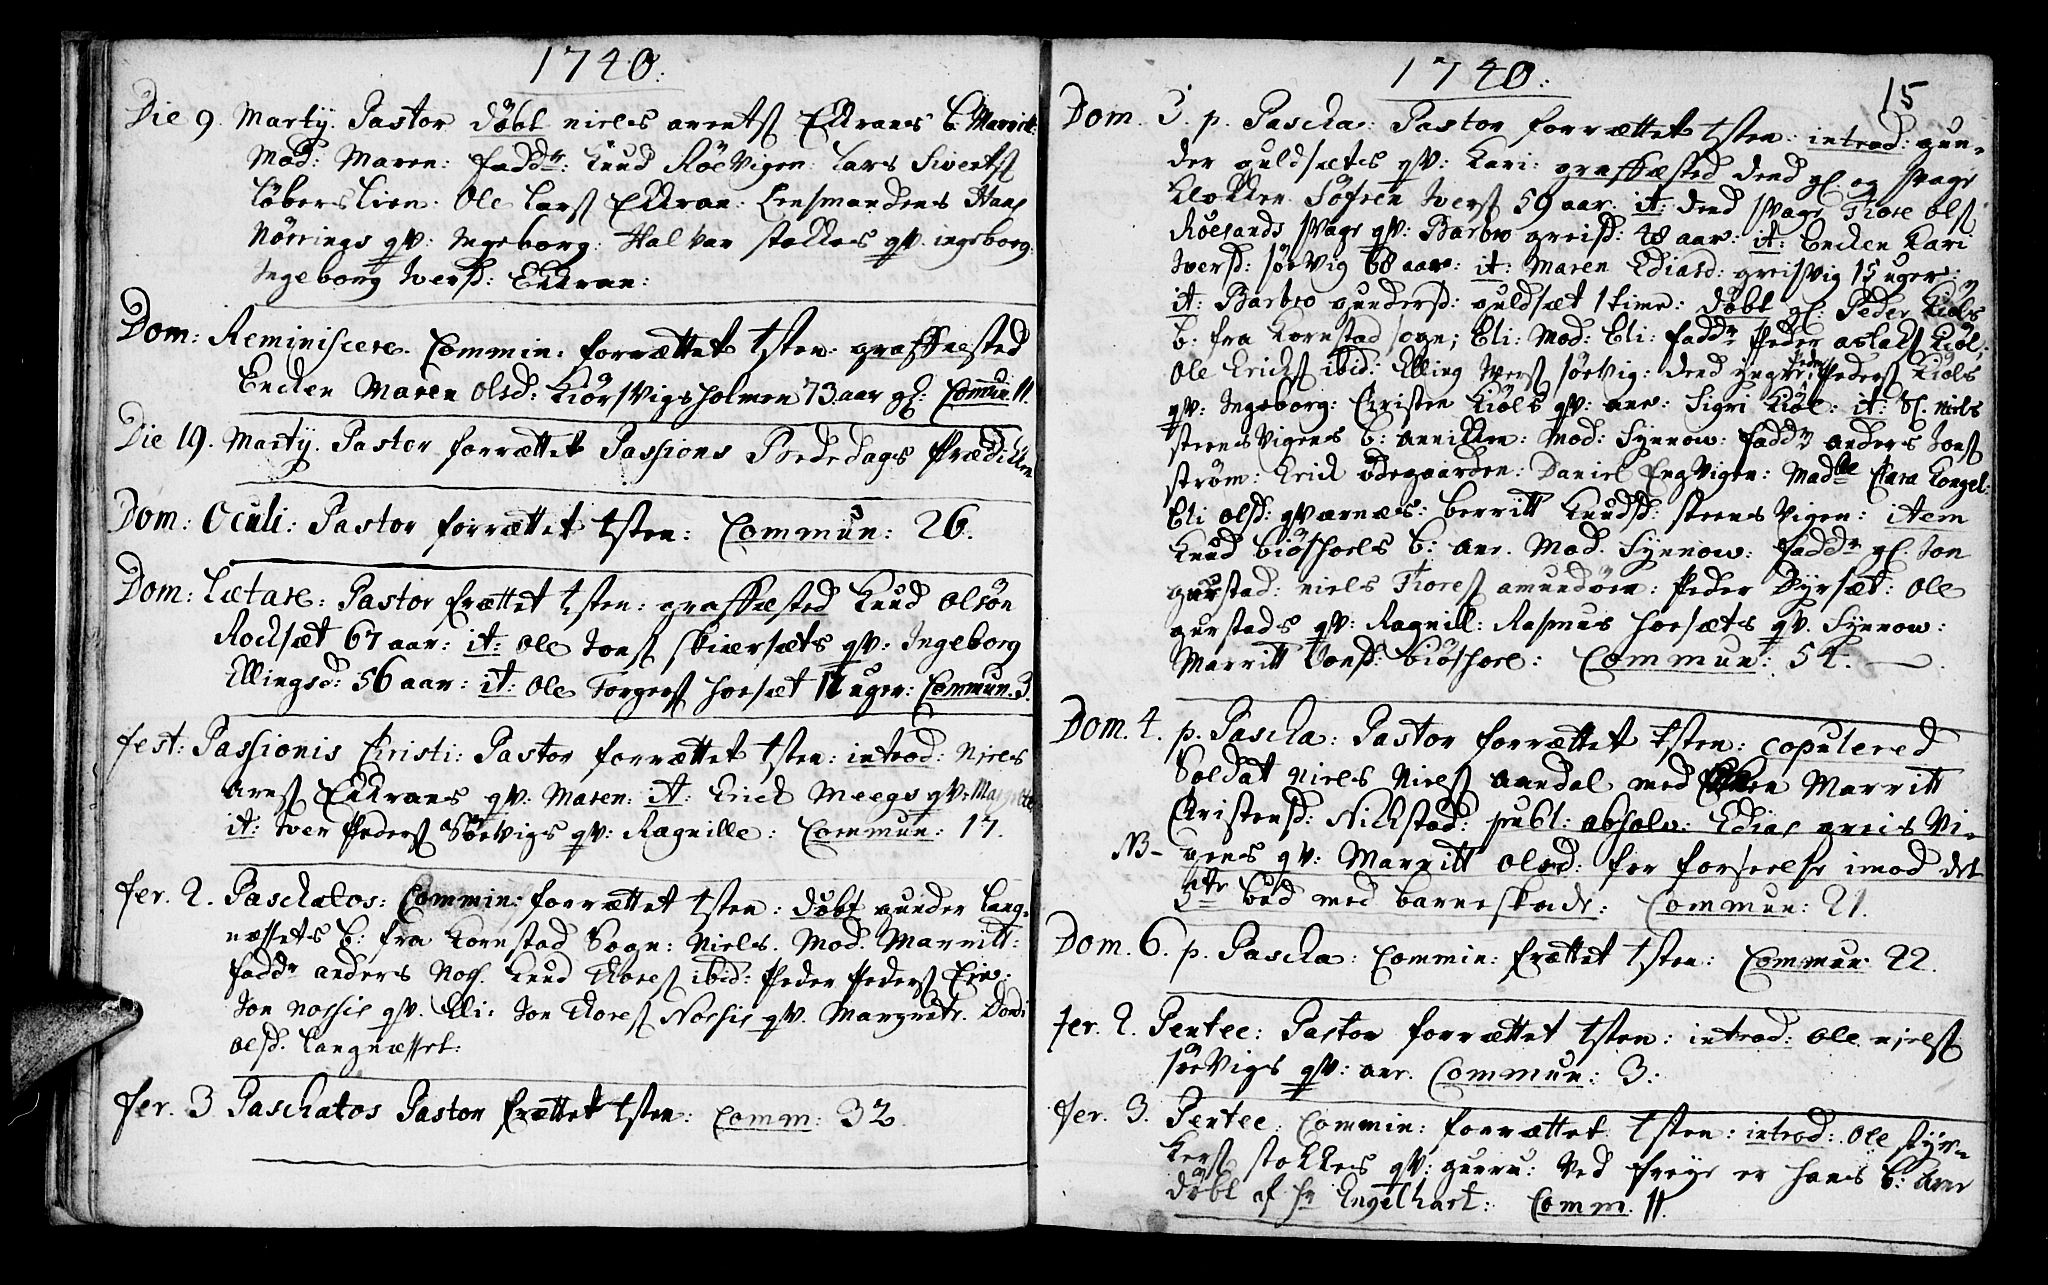 1740.
Die 9. Martij. Pastor döbt niels arentß Ekkrans b. Marritt.
Mod: Maren: fadd: Knud Röe Vigen: Lars Sivertß
Löberslien: Ole Larß Ekkran: Lensmandens Hans
Nörrings qv: Ingeborg: Halvar stokkes qv. ingeborg:
Ingeborg Iversd: Ekkran:
Dom: Reminiscere. Commin: forrættet tsten: graffæsted
Encken Maren Olsd: Kiörsvigsholmen 73 aar gl: Commun. 11.
Die 19. Martij. Pastor forrættet Passions Bededags Prædikken
Dom: Oculi: Pastor forrættet tsten: Commun: 26.
Dom: Lætare: Pastor frættet tsten: graffæsted Knud Olsön
Rodsæt 67 aar: it: Ole Jonß skiærsæts qv: Ingeborg
Ellingsd: 56 aar: it: Ole Torgerß hoesæt uger: Commun. 3.
fest: Passionis Christi: Pastor forrættet tsten: introd: Niels
Arnß Ekkrans qv: Maren: it: Erick Meegs qv:
it: Iver Pederß Sörvigs qv: Ragnille: Commun: 17.
fer. 2. Paschatos: Commin: forrættet tsten: döbt gunder Lang-
næssets b: fra Kornstad Sogn: Niels. Mod. Marritt:
fadd anders Noss. Knud Thoreß ibid: Peder Pederß
Jon Nossis qv. Eli: Jon Thoreß Nossis qv. Margrete. Dordi
Olsd. Langnæsset:
fer. 3 Paschatos Pastor frættet tsten: Comm: 32.
1740. 15
Dom. 3. p. Pascha: Pastor forrættet tsten: introd: gun-
der guldsæts qv: Kari: graffæsted dend gl og svage
klokker Söfren Iverß 59 aar. it: dend svage Thore Olß
Röesands svage qv: Barbro greisd: 48 aar: it: Encken Kari
Iversd: sörvig 68 aar: it: Maren Ediasd: greisvig 15 uger:
it: Barbro gundersd: guldsæt 1 time: döbt gl: Peder Kiöls
b: fra Kornstad sogn; Eli: Mod: Eli: fadd Peder aslaß Kiöl;
Ole Erickß ibid: Elling Iverß sörvig: dend yngre Peder Pederß Kiöls
qv: Ingeborg: Christen Kiöls qv: ane: Sigri Kiöl: it: Sl. Niels
steens Vigens b: annikken: Mod: Synnow: fadd anders Jonß
ström: Erick ödegaarden: Daniel EngVigen: Mad Clara
Eli Olsd: qværnæs: berritt Knudsd: steens Vigen: item
Knud biöshoels b: ane. Mod. Synnow: fadd gl. Jon
gustad: niels Thoreß amundöen: Peder Dyrsæt: Ole
gustads qv: Ragnill: Rasmus hoesæts qv. Synnow:
Marritt Jonsd: biöshoel: Commun: 54.
Dom. 4. p. Pascha: Pastor forrættet tsten: copulered
Soldat Niels Nielß aandal med Marritt
Christensd: Nickstad: publ: absolv: Edias greis Vi-
NB- gens qv: Marritt Olsd: for forseelse imod det
5te bud med barneskade: Commun: 21.
Dom. 6. p. Pascha: Commin: frættet tsten: Commun 22.
fer. 2. Pentec: Pastor forrættet tsten: introd: Ole nielß
sörVigs qv: ane. Commun: 3.
fer. 3. Pentec: Commin: forrættet tsten: introd: Ole styr-
kerß stokkes qv: gurru: Ved freye er hans b: Arne
döbt af hr Engelhart: Comm. 11.